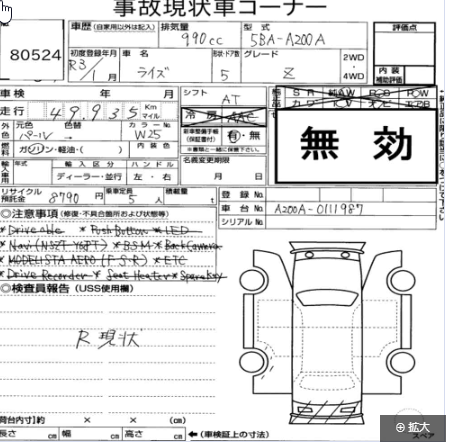 事故現状車コーナー
80524
車歴 (自家用以外は記入) 排気量 990cc 型式 5BA-A200A 評価点
初度登録年月 R3/1月 車名 ライズ 形状・ドア数 5 グレード Z 2WD・4WD
内装 補助評価
車検 年 月 シフト AT
走行 49,935 Km マイル 冷房 AAC
S R 純AW P・S P・W
カワ TV ナビ
外色 元色 パール 色替 カラーNo. W25 新車整備手帳(保証書付) 有・無
燃料 ガソリン・軽油・( ) 内装色 ※書類と一緒に保管下さい。
無効
輸入車用 輸入区分 ディーラー・並行 ハンドル 左・右 名義変更期限 月 日
リサイクル預託金 8790 円 乗車定員 5 人 積載量 t 登録No.
車台No. A200A-0111987
シリアルNo.
◎注意事項 (修復・不具合箇所および状態等)
*Driveable *Push Button *LED
*Navi (NSZT-Y68T) *B.S.M *Back Camera
*MODELISTA AERO (F.S.R) *ETC
*Drive Recorder *Seat Heater *Spare Key
◎検査員報告 (USS使用欄)
R 現状
荷台内寸 約 × × (cm)
長さ cm 幅 cm 高さ cm ←(車検証上の寸法)
スペア
拡大